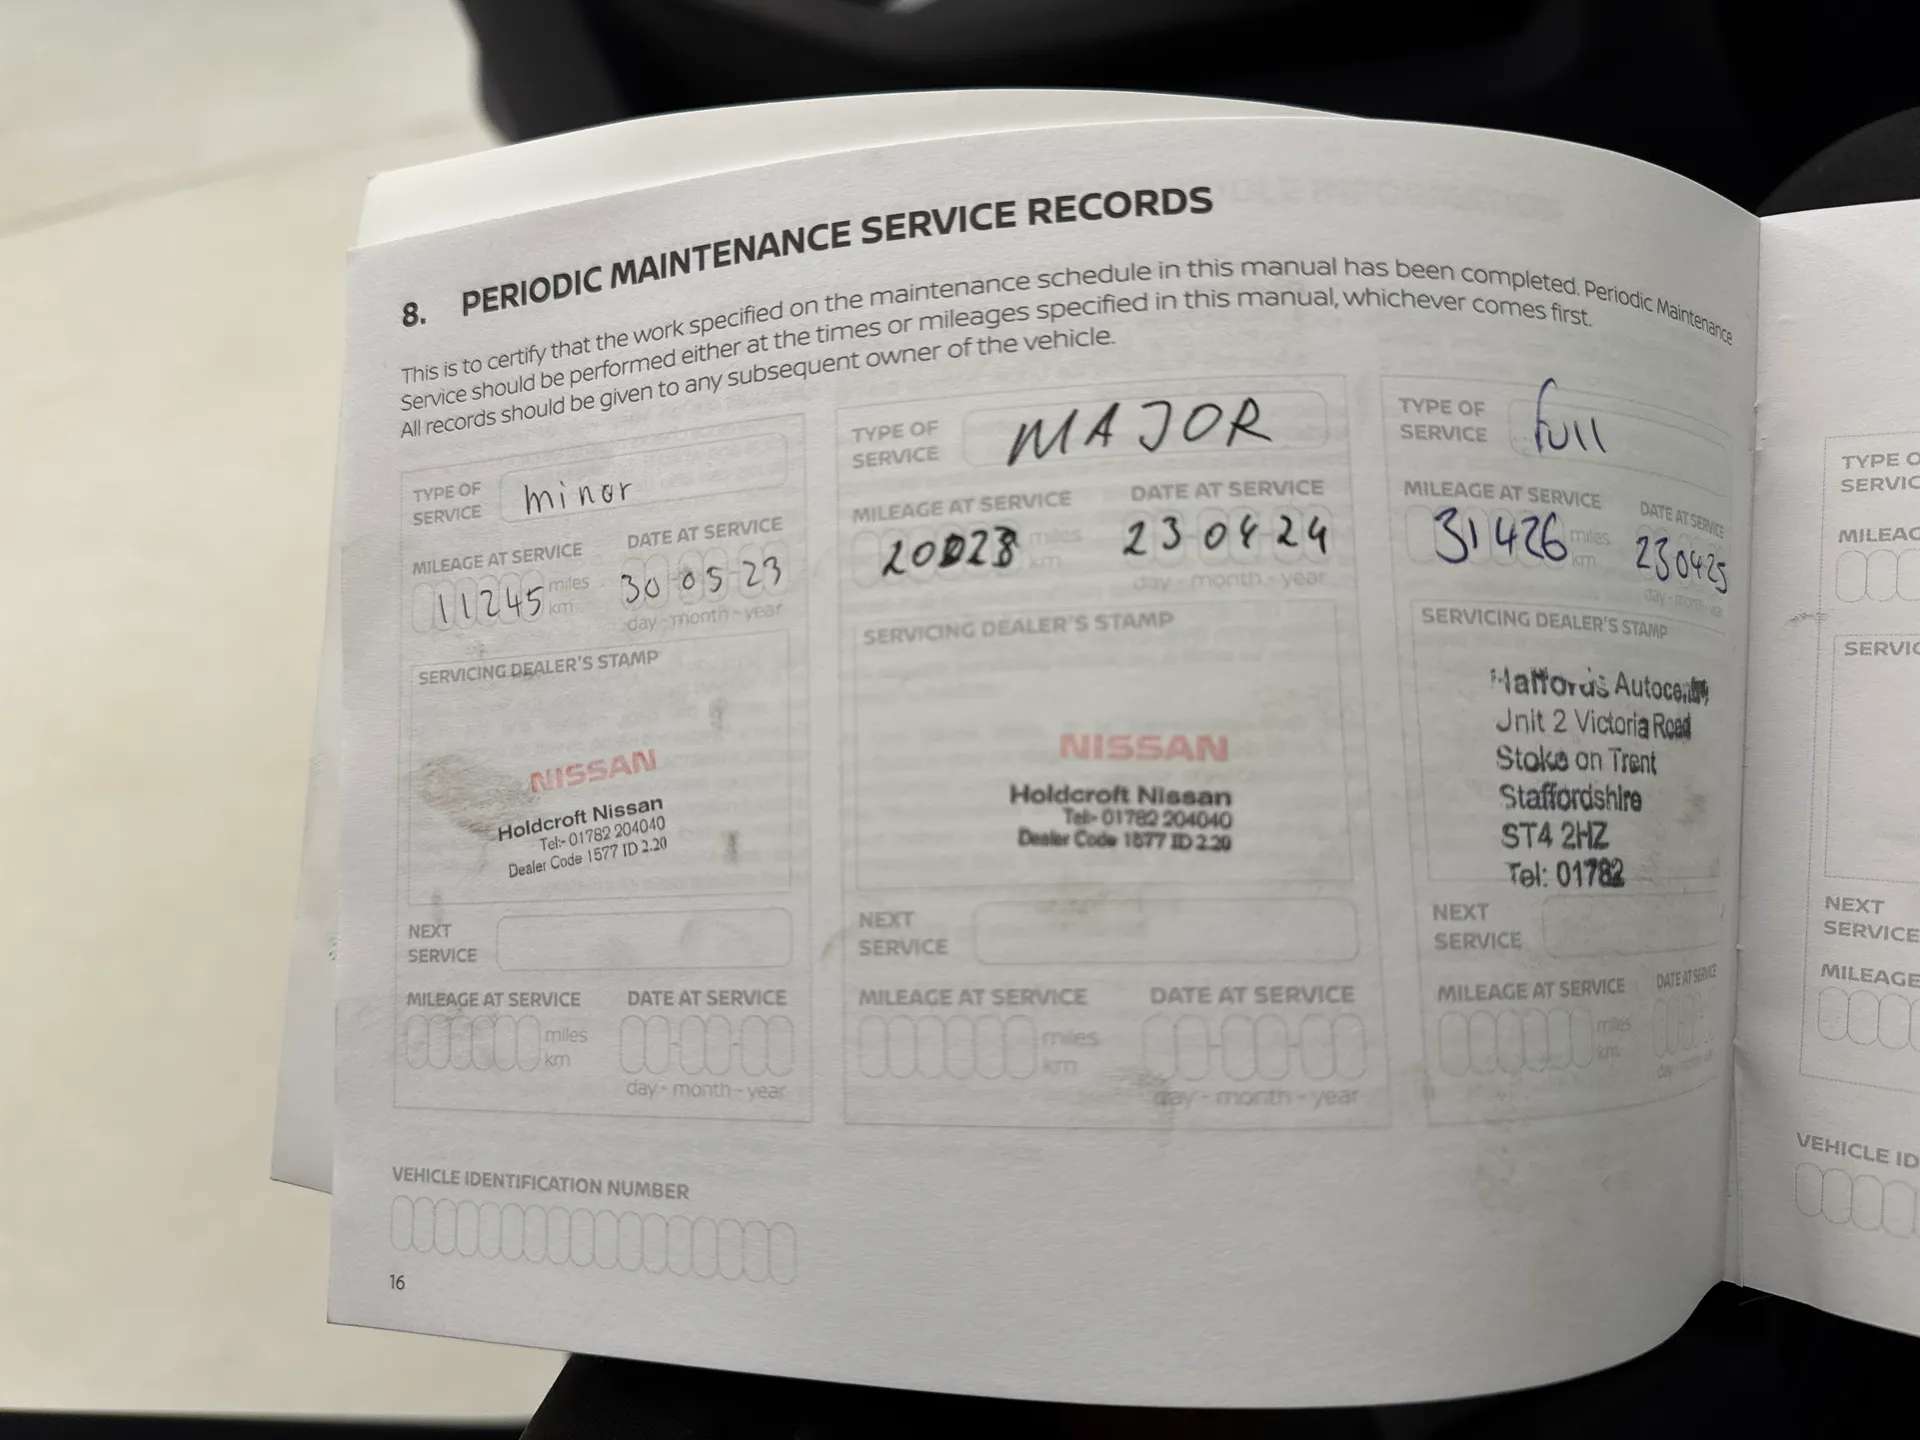 8. PERIODIC MAINTENANCE SERVICE RECORDS
This is to certify that the work specified on the maintenance schedule in this manual has been completed. Periodic Maintenance
Service should be performed either at the times or mileages specified in this manual, whichever comes first.
All records should be given to any subsequent owner of the vehicle.
TYPE OF
SERVICE
minor
MILEAGE AT SERVICE
DATE AT SERVICE
11245
miles
km
30 05 23
day - month - year
SERVICING DEALER'S STAMP
NISSAN
Holdcroft Nissan
Tel:- 01782 204040
Dealer Code 1577 ID 2.20
NEXT
SERVICE
MILEAGE AT SERVICE
DATE AT SERVICE
miles
km
day - month - year
TYPE OF
SERVICE
MAJOR
MILEAGE AT SERVICE
DATE AT SERVICE
miles
km
23 04 24
day - month - year
SERVICING DEALER'S STAMP
NISSAN
Holdcroft Nissan
Tel:- 01782 204040
Dealer Code 1577 ID 2.20
NEXT
SERVICE
MILEAGE AT SERVICE
DATE AT SERVICE
miles
km
day - month - year
TYPE OF
SERVICE
full
MILEAGE AT SERVICE
DATE AT SERVICE
31426
miles
km
230425
SERVICING DEALER'S STAMP
Halfords
Unit 2 Victoria Road
Stoke on Trent
Staffordshire
ST4 2HZ
Tel: 01782
NEXT
SERVICE
MILEAGE AT SERVICE
DATE AT SERVICE
miles
km
VEHICLE IDENTIFICATION NUMBER
16
TYPE
MILEAG
SERVIC
NEXT
SERVICE
MILEAGE
VEHICLE ID